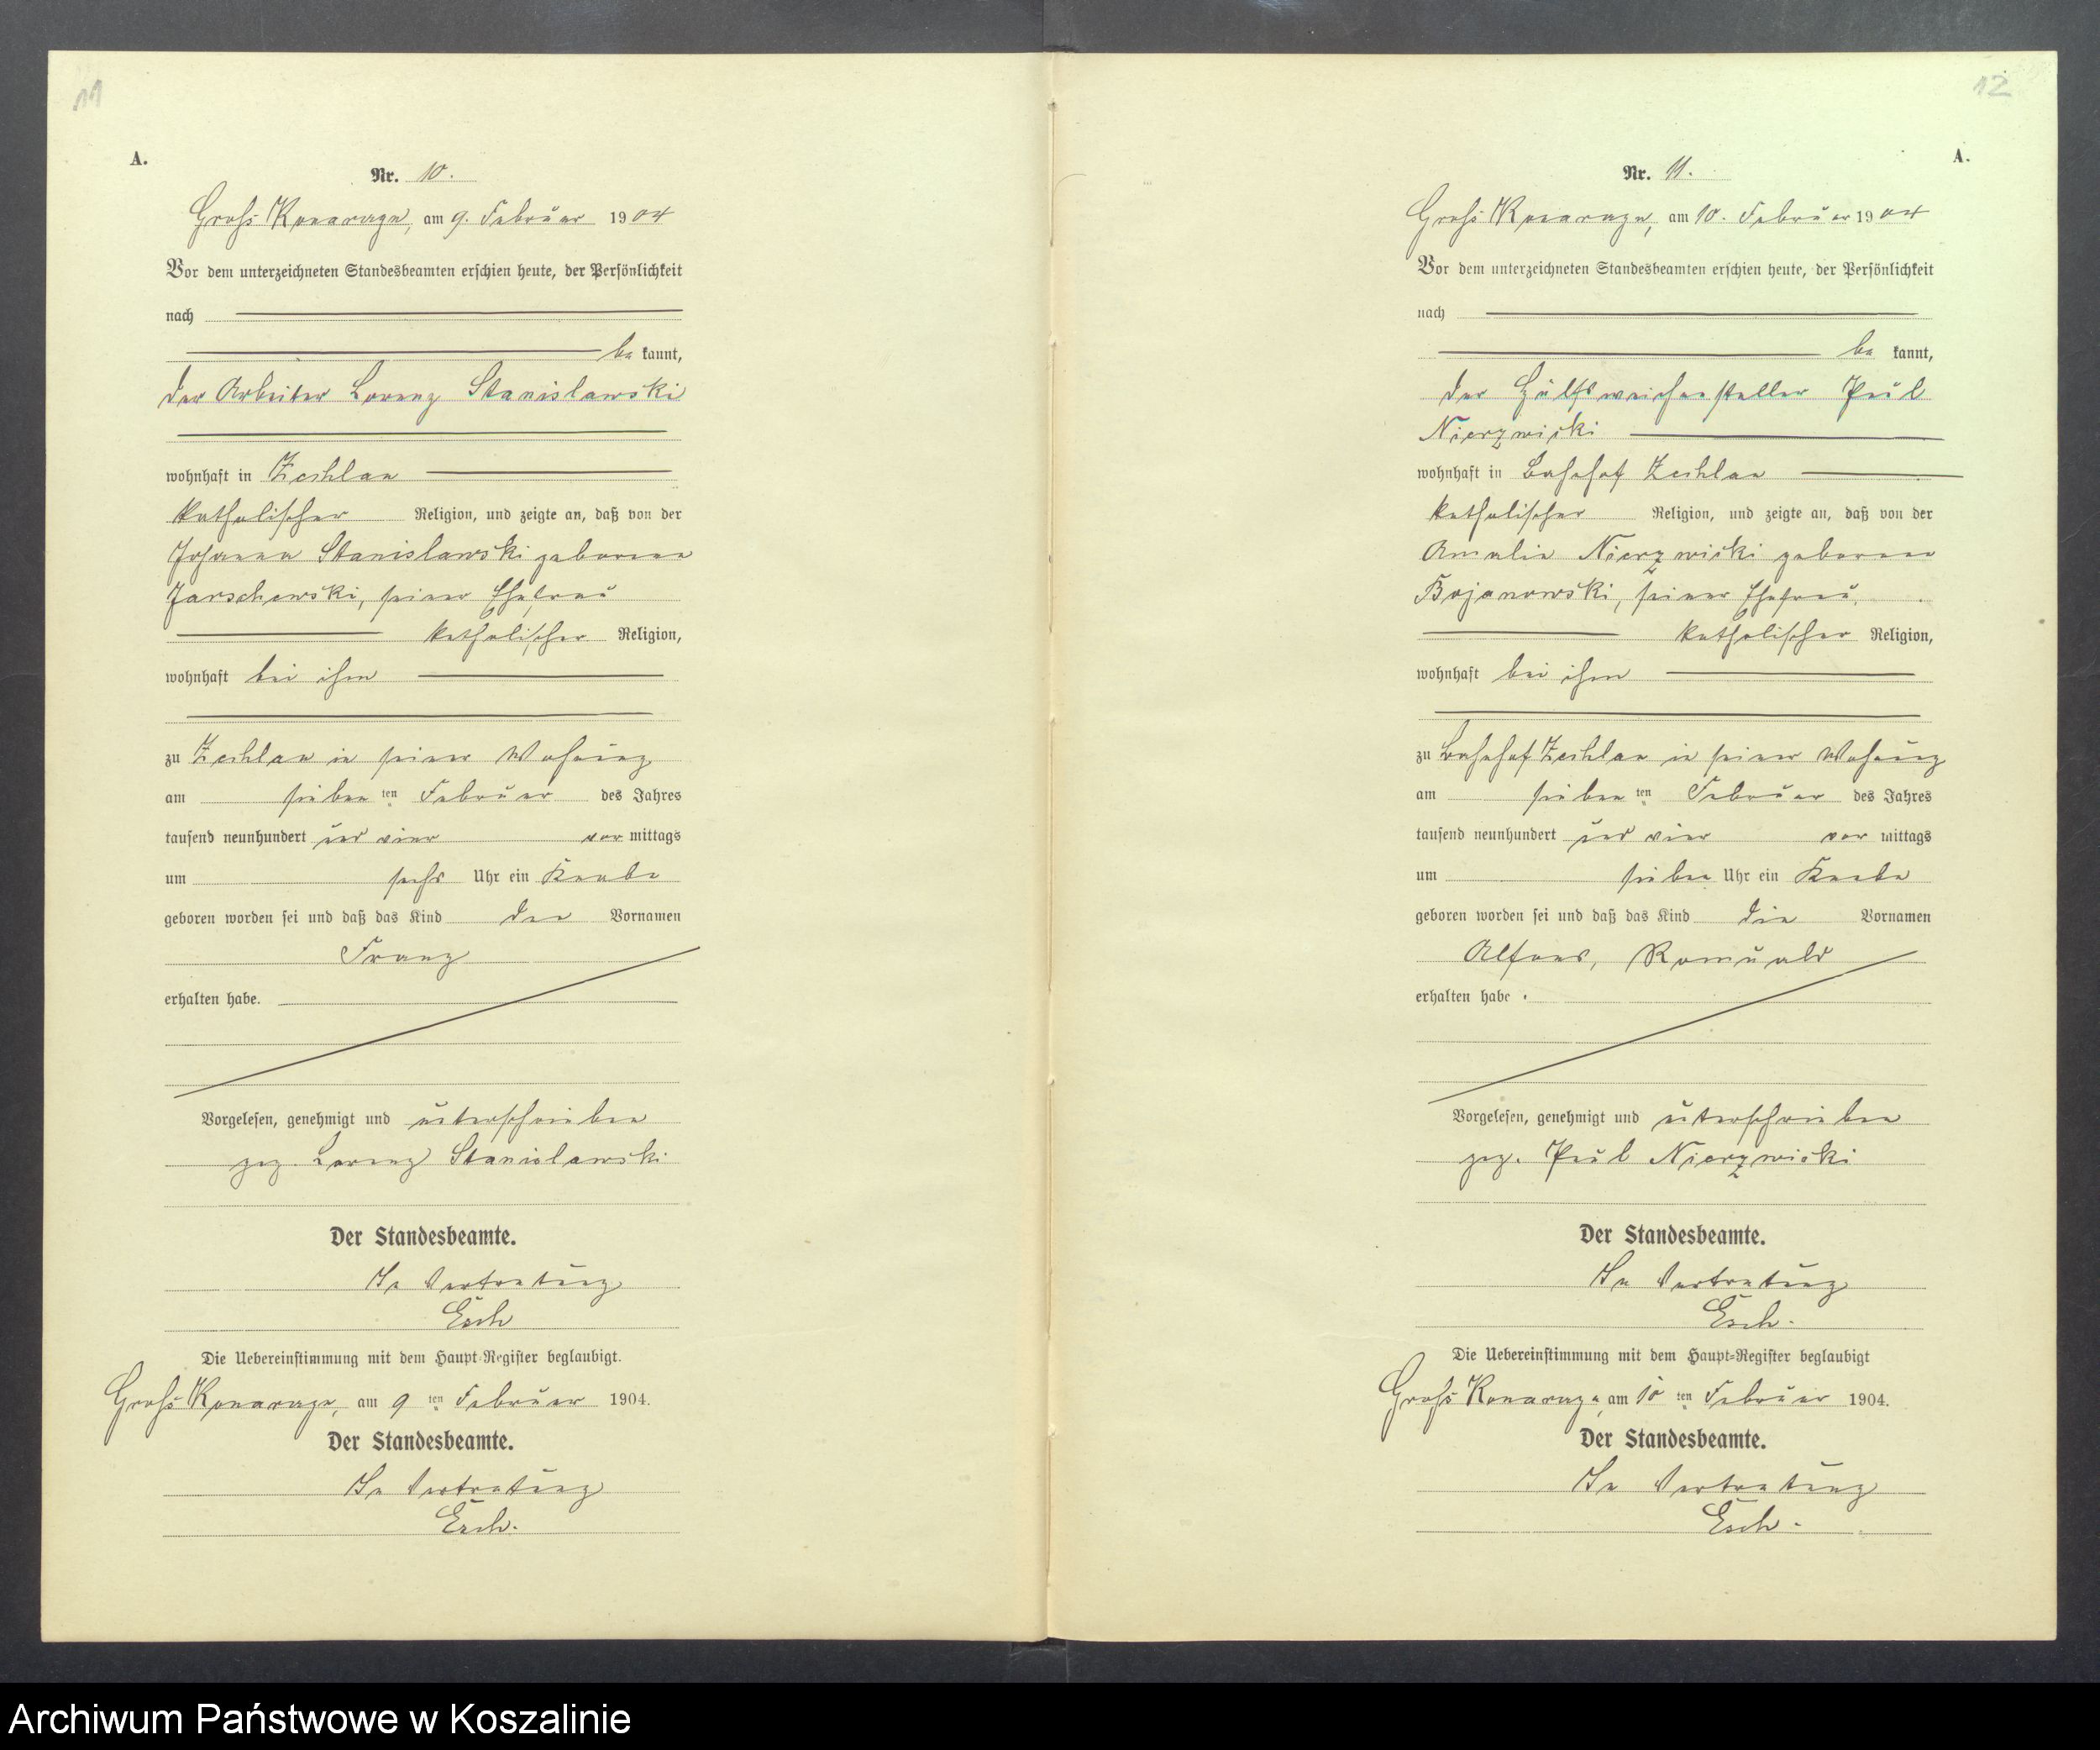 11
A.
Nr. 10.
Gross Konarczyn, am 9. Februar 1904
Vor dem unterzeichneten Standesbeamten erschien heute, der Persönlichkeit
nach
be kannt,
der Arbeiter Lorenz Stanislawski
wohnhaft in Zechlau
katholischer Religion, und zeigte an, daß von der
Johanna Stanislawski geborene
Jarschewski, seiner Ehefrau
katholischer Religion,
wohnhaft bei ihm
zu Zechlau in seiner Wohnung
am sieben ten Februar des Jahres
tausend neunhundert und vier vor mittags
um sechs Uhr ein Knabe
geboren worden sei und daß das Kind den Vornamen
Franz
erhalten habe.
Vorgelesen, genehmigt und unterschrieben
gez. Lorenz Stanislawski
Der Standesbeamte.
In Vertretung
Esch
Die Uebereinstimmung mit dem Haupt-Register beglaubigt.
Gross Konarczyn, am 9 ten Februar 1904.
Der Standesbeamte.
In Vertretung
Esch.
12
A.
Nr. 11.
Gross Konarczyn, am 10. Februar 1904
Vor dem unterzeichneten Standesbeamten erschien heute, der Persönlichkeit
nach
be kannt,
der Hülfsweichensteller Paul
Nierzwicki
wohnhaft in Bahnhof Zechlau
katholischer Religion, und zeigte an, daß von der
Amalie Nierzwicki geborene
Bojanowski, seiner Ehefrau,
katholischer Religion,
wohnhaft bei ihm
zu Bahnhof Zechlau in seiner Wohnung
am sieben ten Februar des Jahres
tausend neunhundert und vier vor mittags
um sieben Uhr ein Knabe
geboren worden sei und daß das Kind die Vornamen
Alfons, Romuald
erhalten habe.
Vorgelesen, genehmigt und unterschrieben
gez. Paul Nierzwicki
Der Standesbeamte.
In Vertretung
Esch.
Die Uebereinstimmung mit dem Haupt-Register beglaubigt
Gross Konarczyn, am 10 ten Februar 1904.
Der Standesbeamte.
In Vertretung
Esch.
Archiwum Państwowe w Koszalinie